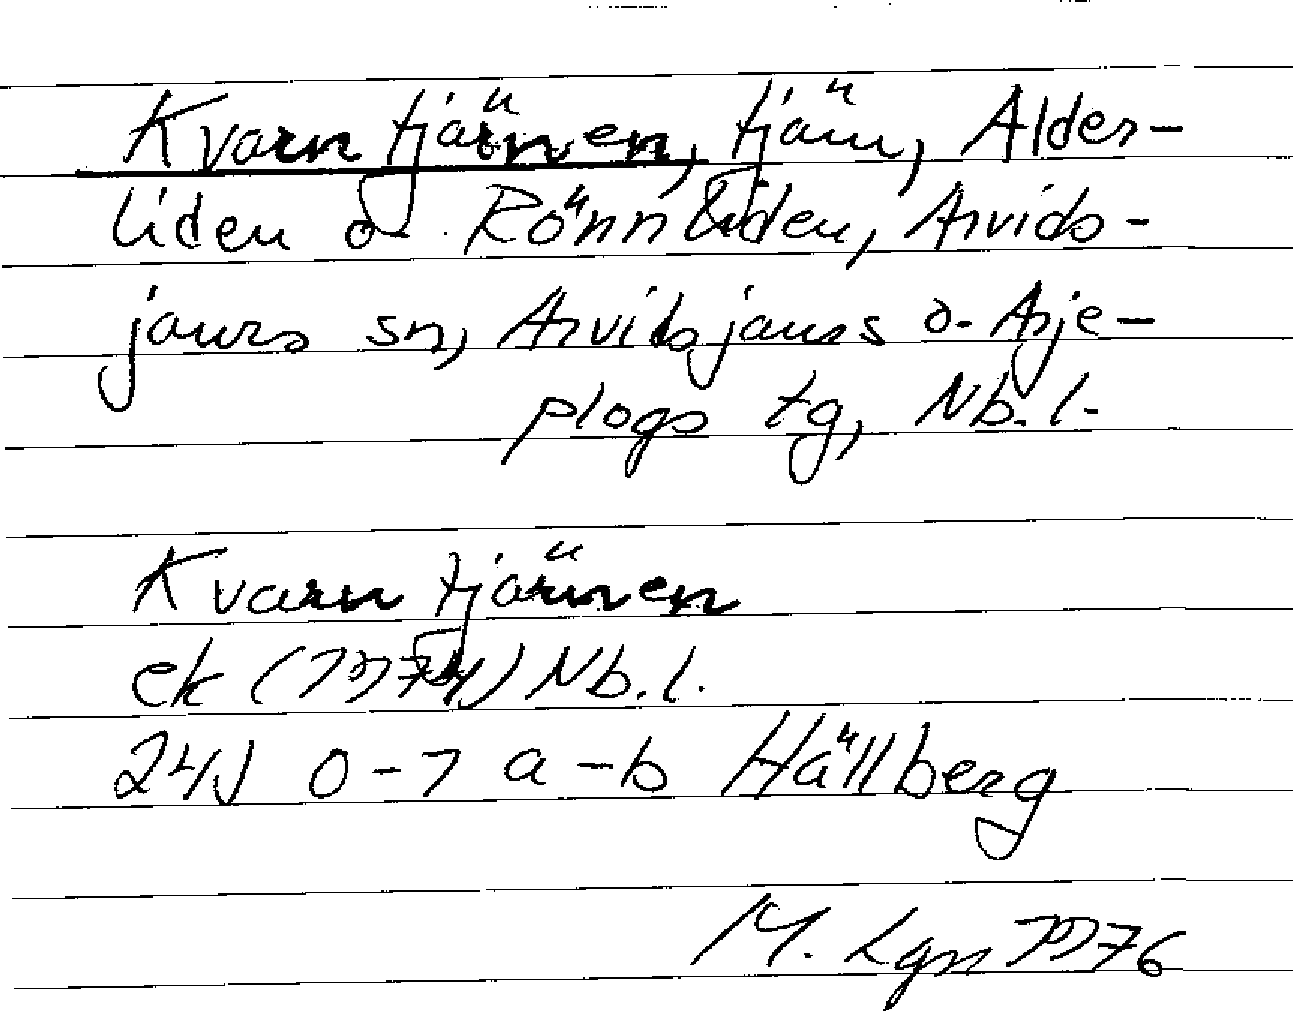 Kvarntjärnen, tjärn, Alder-
liden o. Rönnliden, Arvids-
jaurs sn, Arvidsjaurs o. Arje-
plogs tg, Nb. l.
Kvarntjärnen
ek (1974) Nb. l.
24J 0-1 a-b Hällberg
M. Lgn 1976